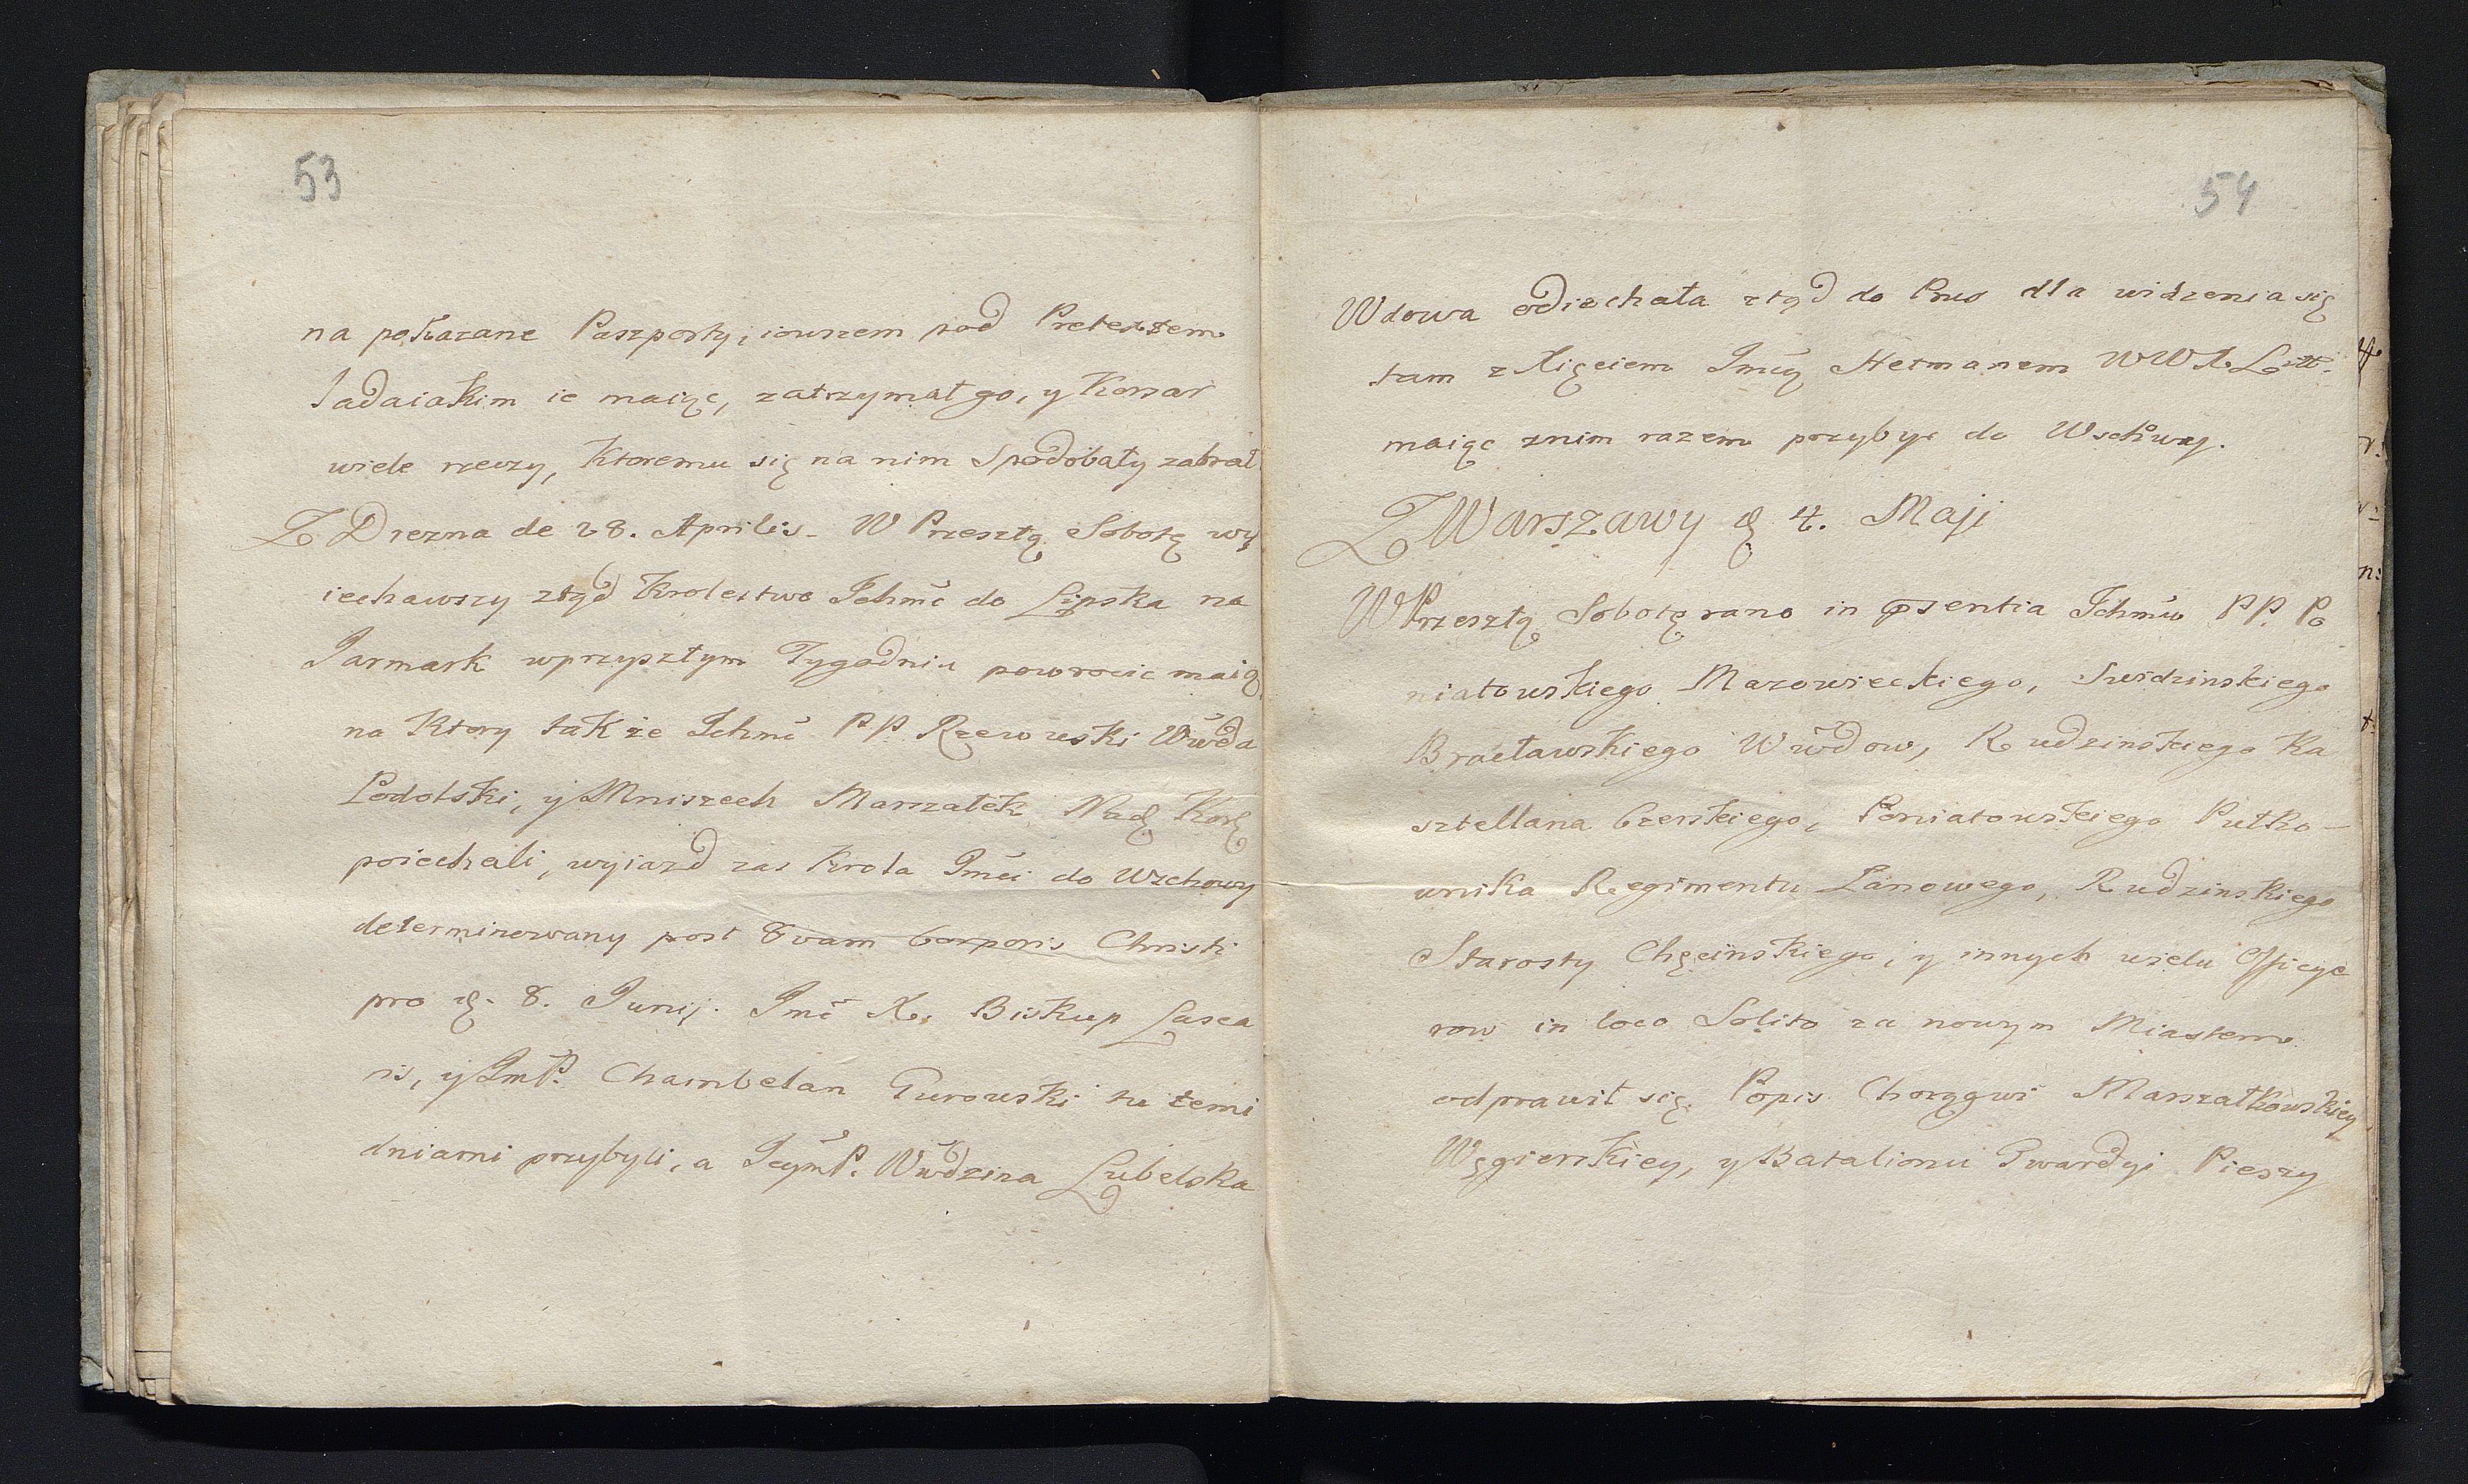 53
na pokazane Paszporty, iowszem pod Pretextem
ladaiakim ie maiąc, zatrzymał go, y Korsar
wiele rzeczy, Ktoremu się na nim Spodobały zabrał
Z Drezna de 28. Aprilis. W Przeszłą Sobotę wy
iechawszy ztąd Krolestwo Ichmc do Lipska na
Jarmark wprzyszłym Tygodniu powrocic maią,
na Ktory takze Ichmć PP. Rzewuski Wwda
Podolski, y Mniszech Marszałek Nad Kor
poiechali, wyiazd zas Krola Jmci do Wschowy
determinowany post 8vam Corporis Christi
pro d. 8. Junij. Jmć X. Biskup Lasca
ris, y JmP. Chambelan Gurowski tu temi
dniami przybyli, a JeymP. Wwdzina Lubelska
54
Wdowa odiechała ztąd do Prus dla widzenia się
tam z Xięciem Jmcią Hetmanem WWXLitt.
maiąc znim razem przybyc do Wschowy.
Z Warszawy d 4. Maji
W Przeszłą Sobotę rano in psentia Ichmciw PP. Po
niatowskiego Mazowieckiego, Swidzinskiego
Bracławskiego Wwdow, Rudzinskiego Ka
sztellana Czerskiego, Poniatowskiego Pułko-
wnika Regimentu Łanowego, Rudzinskiego
Starosty Chęcinskiego, y innych wielu Officye
row in loco Solito za nowym Miastem
odprawił się Popis Chorągwi Marszałkowskiey
Węgierskiey, y Batalionu Gwardyi Pieszy